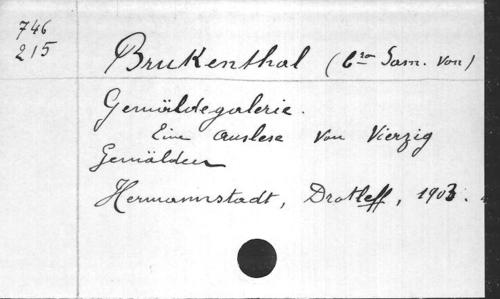 746
215
Brukenthal (Bon Sam. von)
Gemäldegalerie.
Eine auslese von Vierzig
Gemälden
Hermannstadt, Drotleff, 1903.